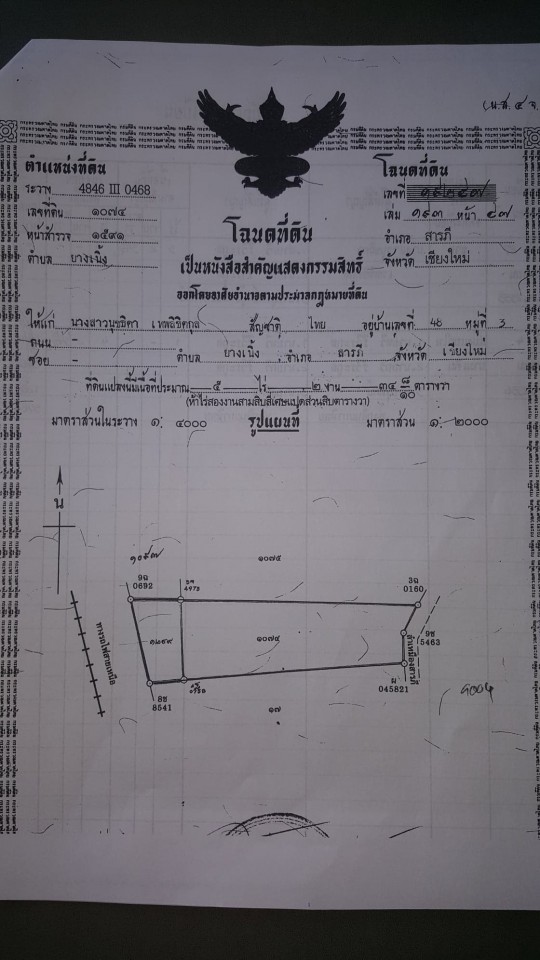 (น.ส. ๔ จ
ตำแหน่งที่ดิน
ระวาง 4846 III 0468
เลขที่ดิน ๑๐๗๔
หน้าสำรวจ ๑๕๙๑
ตำบล ยางเนิ้ง
โฉนดที่ดิน
เลขที่
เล่ม ๑๙๓ หน้า ๔๗
อำเภอ สารภี
จังหวัด เชียงใหม่
โฉนดที่ดิน
เป็นหนังสือสำคัญแสดงกรรมสิทธิ์
ออกโดยอาศัยอำนาจตามประมวลกฎหมายที่ดิน
ให้แก่ นางสาวนุชธิดา สัญชาติ ไทย อยู่บ้านเลขที่ 46 หมู่ที่ 3
ถนน -
ซอย - ตำบล ยางเนิ้ง อำเภอ สารภี จังหวัด เชียงใหม่
ที่ดินแปลงนี้มีเนื้อที่ประมาณ ๕ ไร่ ๒ งาน ๓๔ ๘/๑๐ ตารางวา
(ห้าไร่สองงานสามสิบสี่เศษแปดส่วนสิบตารางวา)
มาตราส่วนในระวาง ๑: ๔๐๐๐ รูปแผนที่ มาตราส่วน ๑: ๒๐๐๐
น
๑๐๗๕
9ฉ
0692
4973
3ฉ
0160
ทางรถไฟสายเหนือ
๑๐๗๔
ลำเหมืองสารภี
9ซ
5463
8ซ
8541
ผ
045821
๑๗